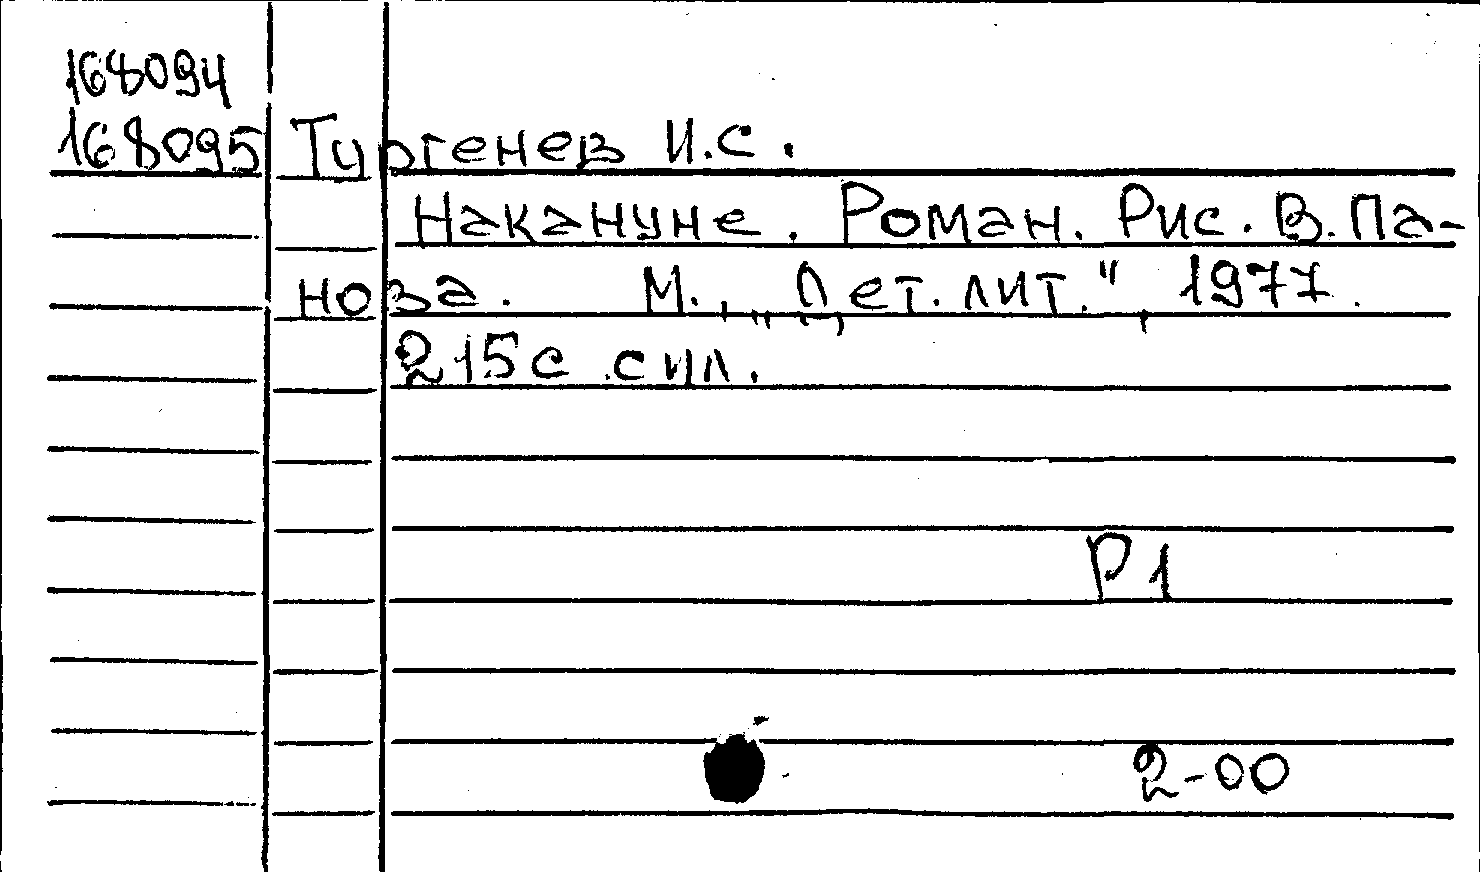 168094
168095 Тургенев И.С.
Накануне. Роман. Рис. В. Па-
нова. М., „Дет. лит.", 1977.
215с с ил.
Р1
2-00